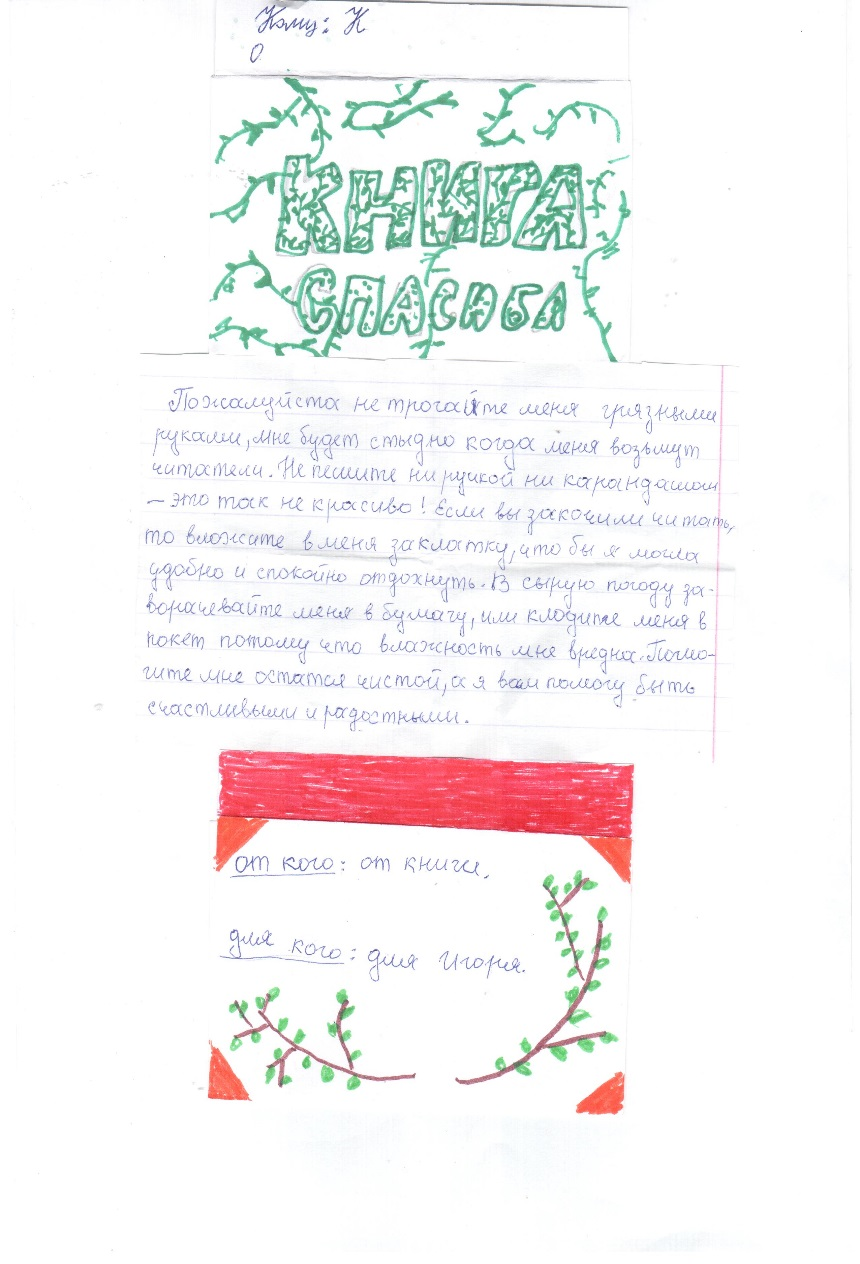 Кому: К
О
КНИГА
СПАСИБА
Пожалуйста не трогайте меня грязными
руками, мне будет стыдно когда меня возьмут
читатели. Не пешите ни ручкой ни карандашом
– это так не красиво! Если вы закочили читать,
то вложите в меня заклатку, что бы я могла
удобно и спокойно отдохнуть. В сырую погоду за-
ворачевайте меня в бумагу, или клодите меня в
покет потому что влажность мне вредна. Помо-
гите мне остатся чистой, а я вам помогу быть
счастливыми и радостными.
от кого: от книги.
для кого: для Игоря.